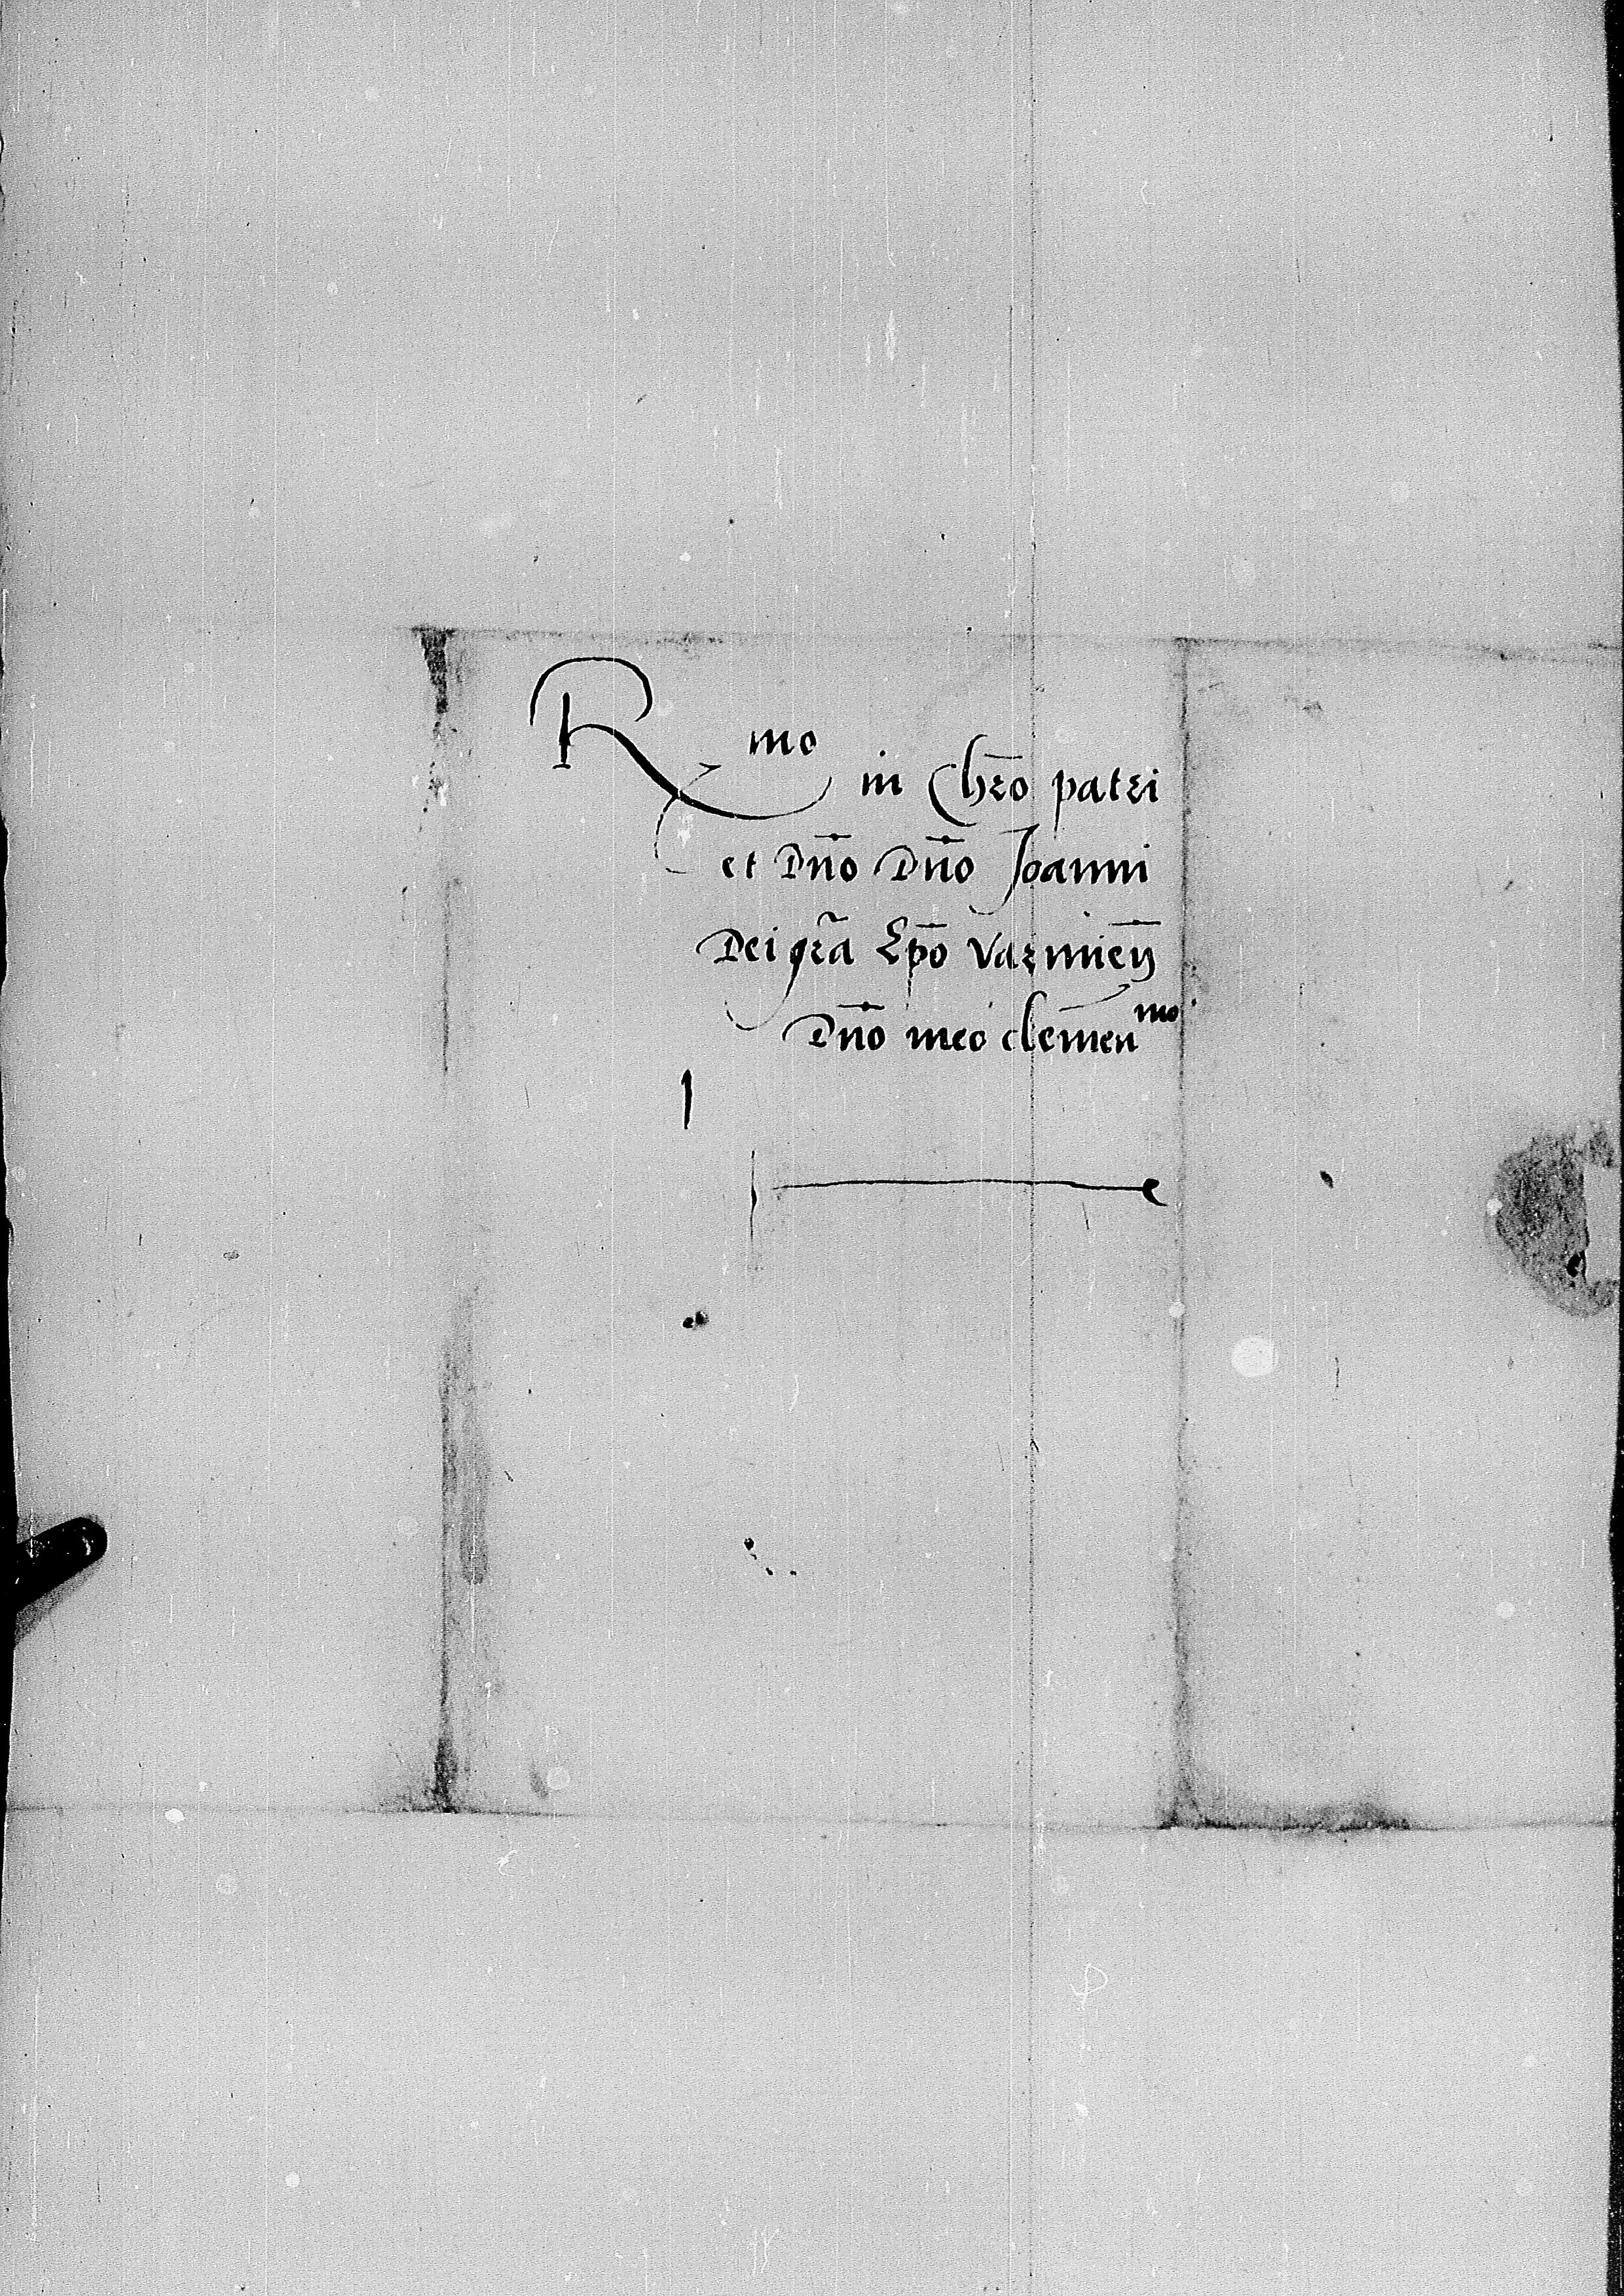 Rmo in Chr̄o patri
et Dn̄o Dn̄o Joanni
Dei gr̃a Ep̄o Varmien̄
Dn̄o meo clemenmo